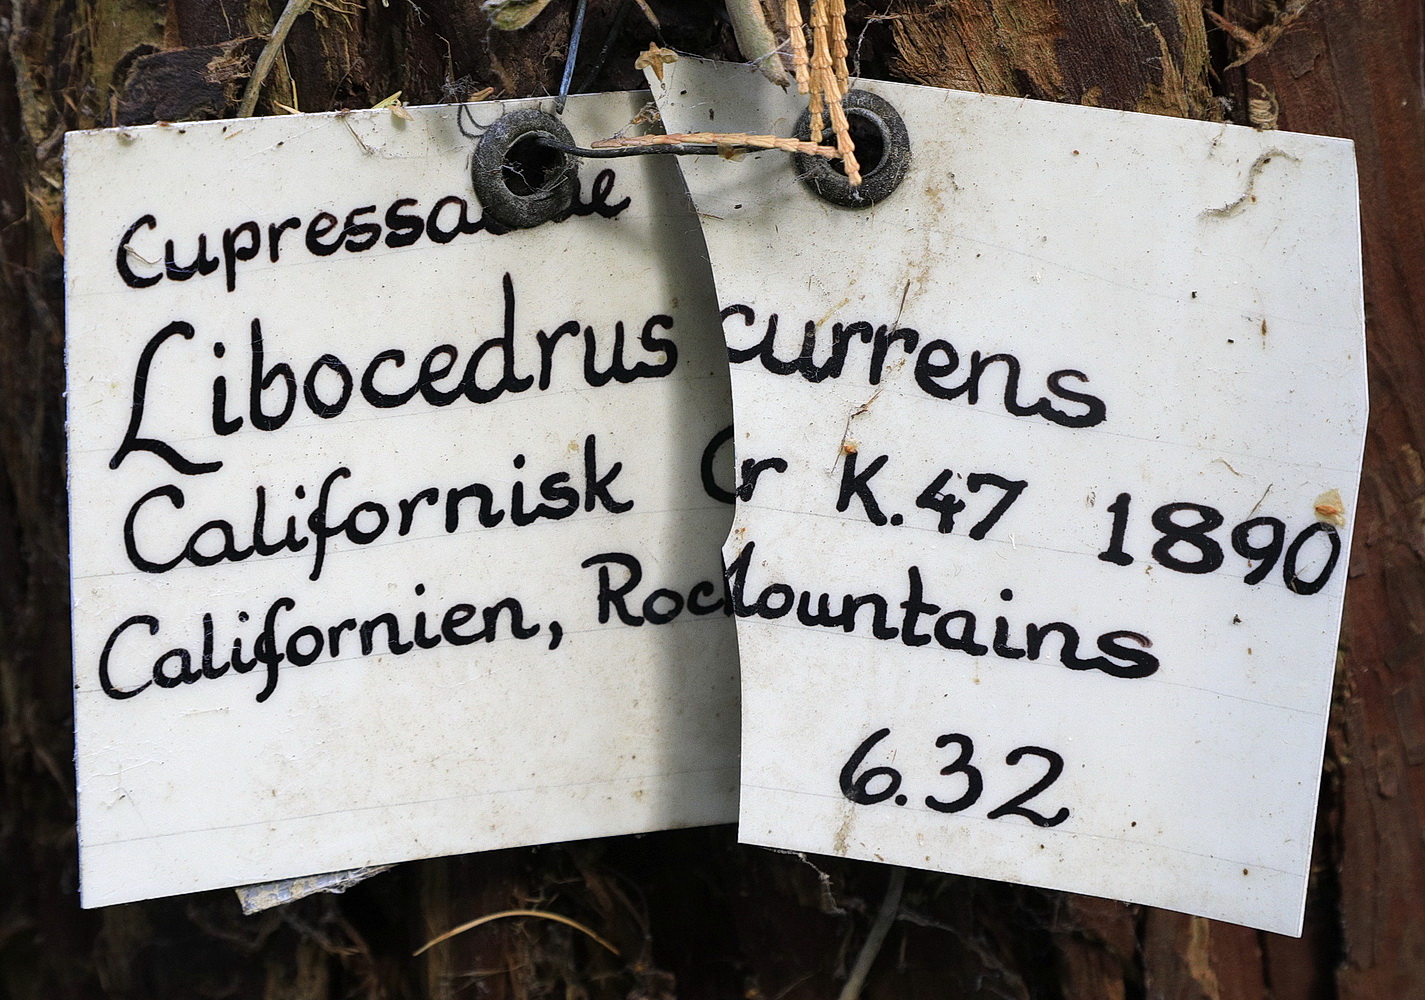 Cupressaceae
Libocedrus currens
Californisk Cr K.47 1890
Californien, Roc Mountains
6.32